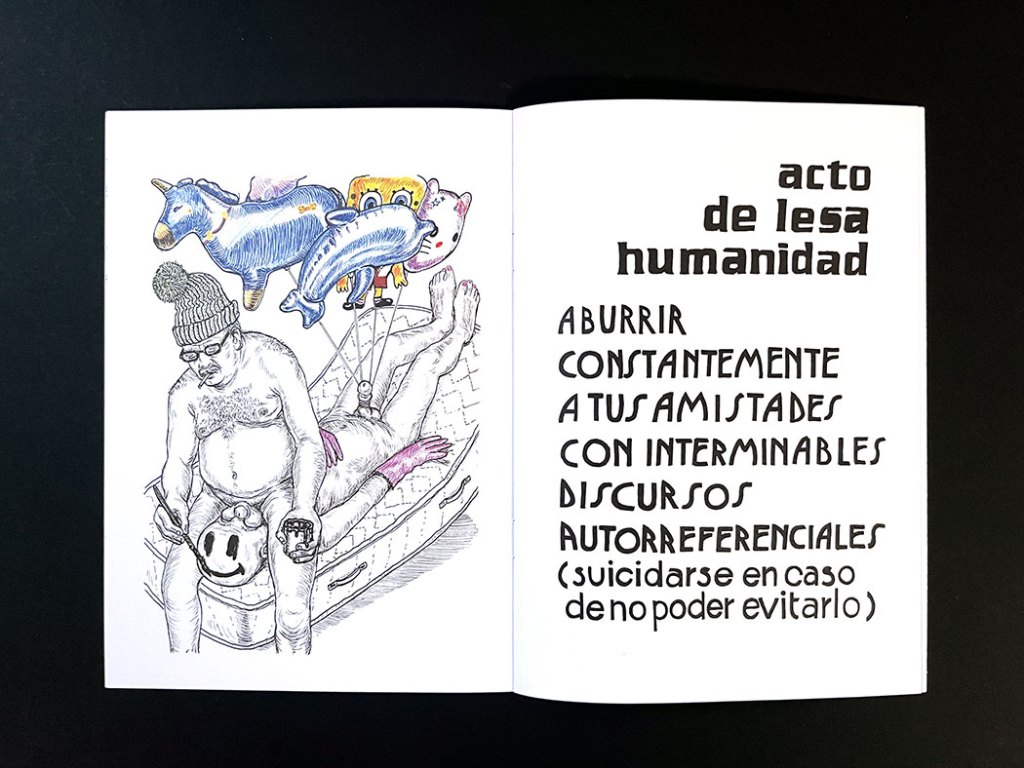 acto
de lesa
humanidad
ABURRIR
CONSTANTEMENTE
A TUS AMISTADES
CON INTERMINABLES
DISCURSOS
AUTORREFERENCIALES
(suicidarse en caso
de no poder evitarlo)